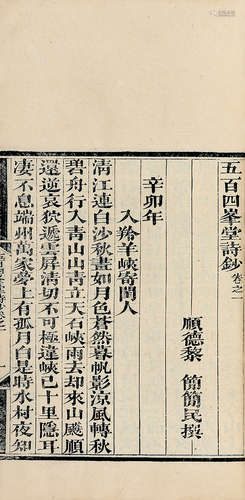 五百四峯堂詩鈔 卷之一
順德黎 簡簡民撰
辛卯年
入羚羊峽寄閨人
清江連白沙秋晝如月色蒼然暮帆影涼風轉秋
碧舟行入青山山青立天石峽雨去却來山颷順
還逆哀狖遞雲屏清切不可極違峽已十里隱耳
凄不息端州萬家夢上有孤月白是時水村夜知